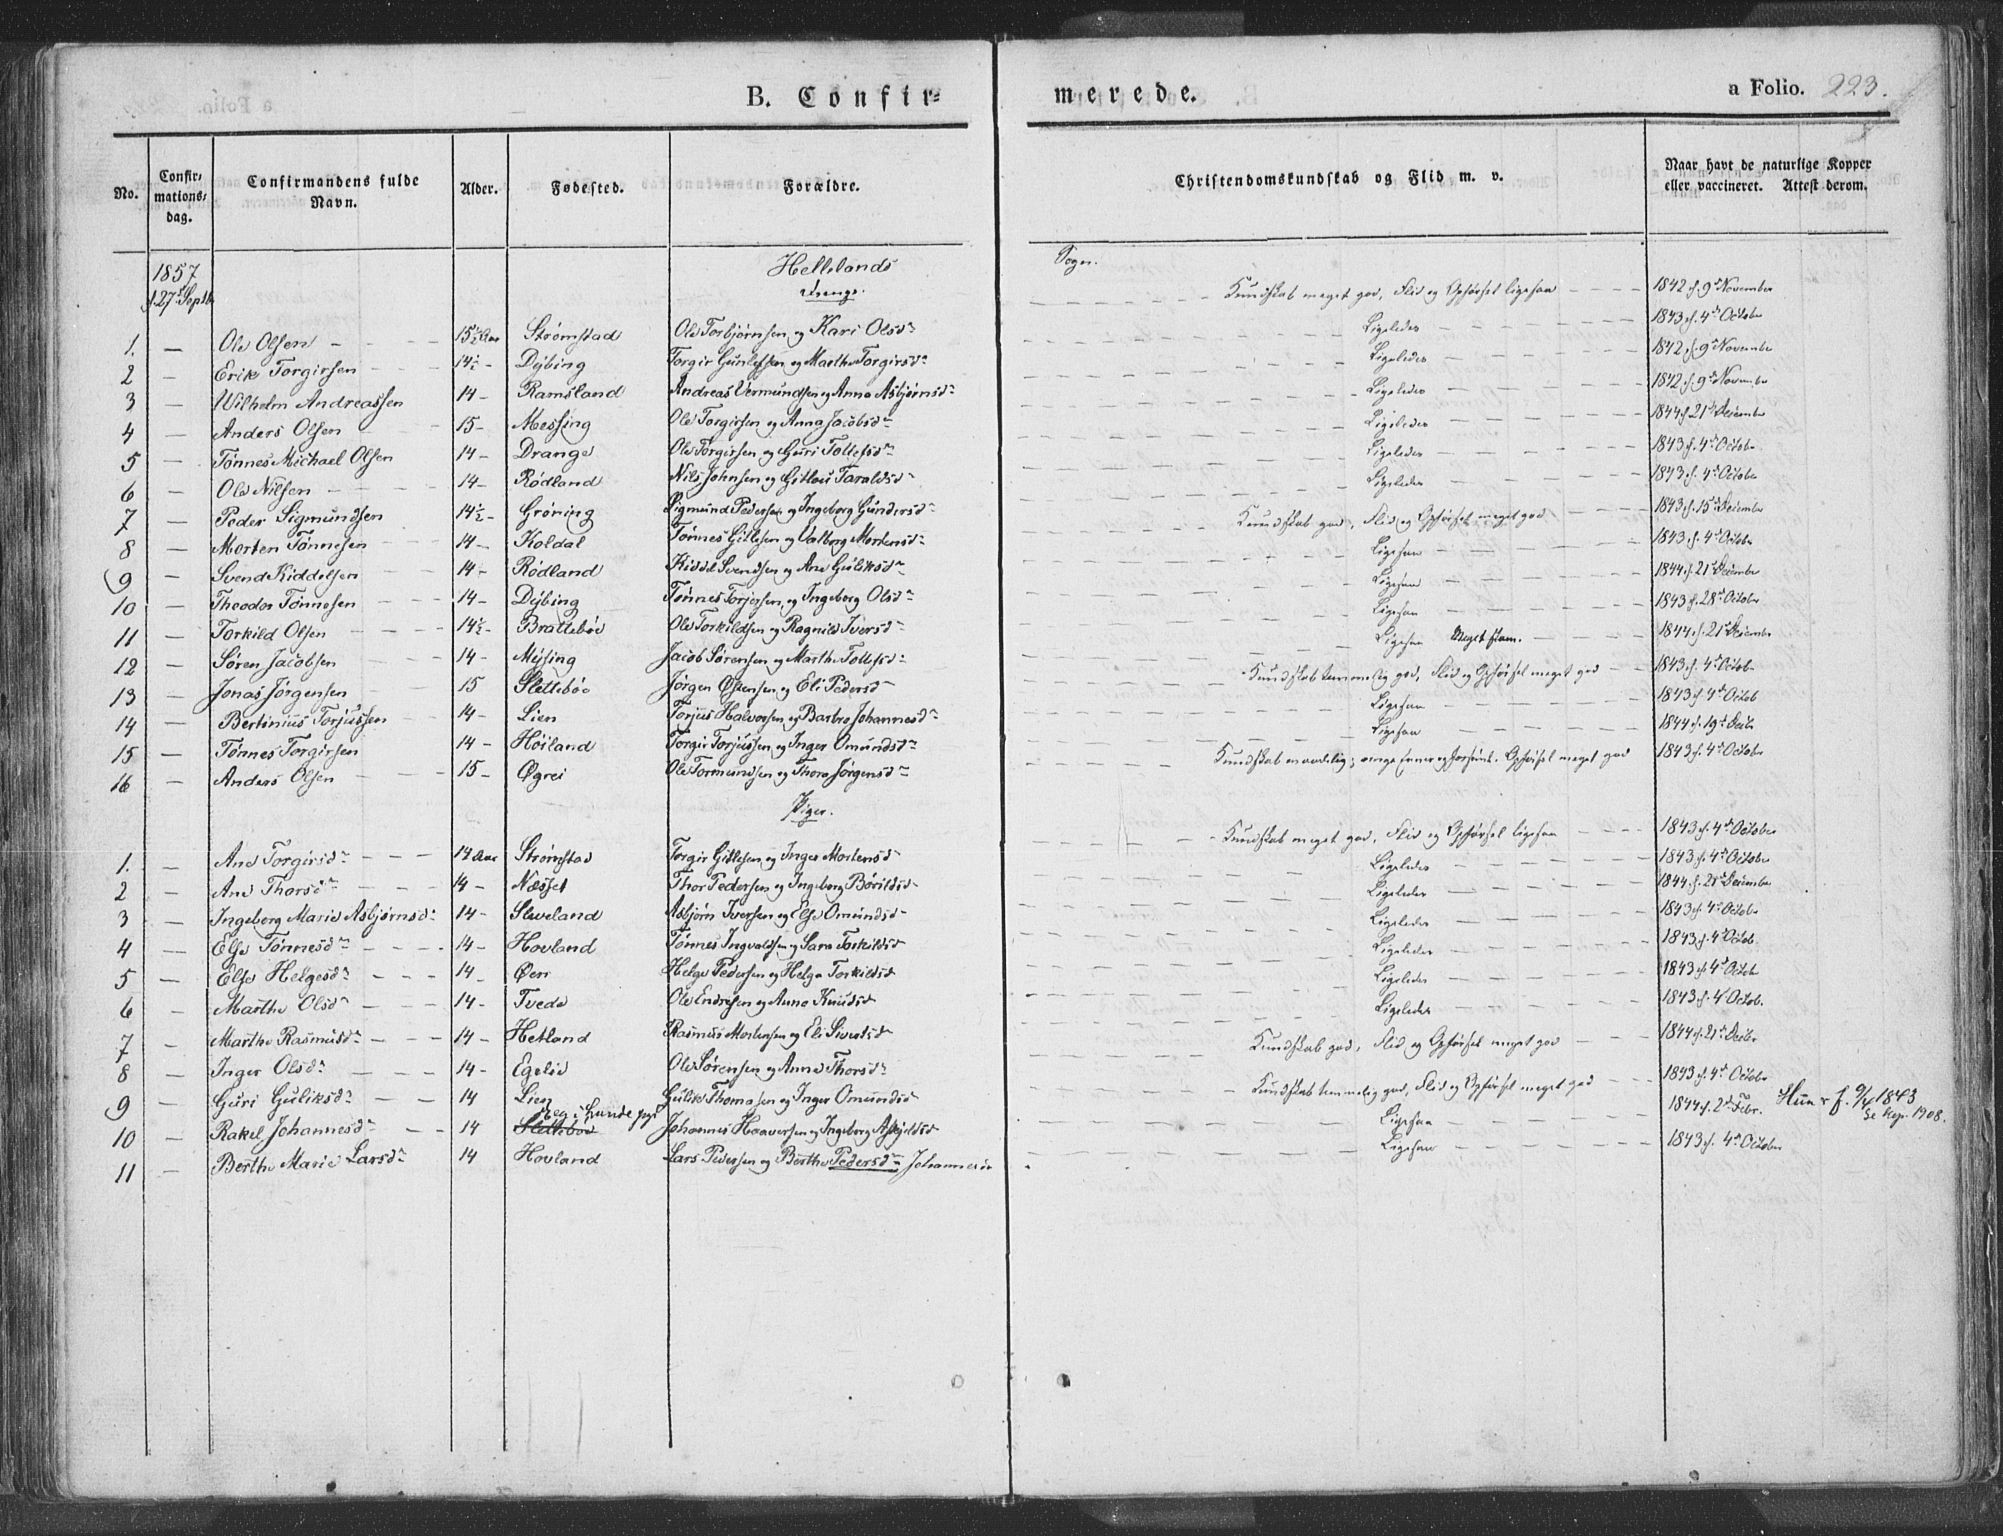 B. Confir=
merede.
a Folio. 223.
No. Confir, mations, dag. Confirmandens fulde Navn. Alder. Fødested. Forældre. Christendomskundskab og Flid m. v. Naar havt de naturlige Kopper eller vaccineret. Attest derom.
1857 Hellelands Sogn.
d. 27de Septb. Drenge.
1. — Ole Olsen 15½ Aar Strømstad Ole Torbjørnsen og Kari Olsdr Kundskab meget god, Flid og Opførsel ligesaa 1842 d. 9de November
2 — Erik Torgirsen 14½ - Dybing Torgir Gunlefsen og Marthe Torgirsdr Ligeledes 1843 d. 4de Octobr
3 — Wilhelm Andreassen 14 - Ramsland Andreas Vermundsen og Anne Asbjørnsdr Ligeledes 1842 d. 9de Novembr
4 — Anders Olsen 15 - Messing Ole Torgirsen og Anna Jacobsdr Ligeledes 1842 d. 9de Novembr
5 — Tønnes Michael Olsen 14 - Drange Ole Torgirsen og Guri Tollefsdr Ligeledes 1844 d. 21de Decembr
6 — Ole Nilsen 14 - Rødland Nils Johnsen og Gitlou Taraldsdr Ligeledes 1843 d. 4de Octobr
7 — Peder Sigmundsen 14½ - Grøning Sigmund Pedersen og Ingeborg Gundersdr Ligeledes 1843 d. 4de Octobr
8 — Morten Tønnesen 14 - Koldal Tønnes Gitlesen og Valborg Mortensdr Kundskab god, Flid og Opførsel meget god 1843 d. 15de Decembr
9 — Svend Kiddelsen 14 - Rødland Kiddel Svendsen og Ane Guliksdr Ligesaa 1843 d. 4de Octobr
10 — Theodor Tønnesen 14 - Dybing Tønnes Torjersen og Ingeborg Olsdr Ligesaa 1844 d. 21de Decembr
11 — Torkild Olsen 14½ - Brattebøe Ole Torkildsen og Ragnild Iversdr Ligesaa 1843 d. 28de Octobr
12 — Søren Jacobsen 14 - Mysing Jacob Sørensen og Marthe Tollefsdr Ligesaa Meget stam. 1844 d. 21de Decembr
13 — Jonas Jørgensen 15 Slettebøe Jørgen Østensen og Eli Pedersdr Kundskab temmelig god, Flid og Opførsel meget god 1843 d. 4de Octobr
14 — Bertinius Torjussen 14 - Lien Torjus Halvorsen og Barbro Johannesdr Ligesaa 1843 d. 4de Octob
15 — Tønnes Torgirsen 14 - Høiland Torgir Torjussen og Inger Omundsdr Ligesaa 1844 d. 19de Decbr
16 — Anders Olsen 15 - Øgrei Ole Tormundsen og Thora Jørgensdr Kundskab maadelig; Opførsel meget god 1843 d. 4de Octobr
Piger.
1. — Ane Torgirsdr 14 Aar Strømstad Torgir Gitlesen og Inger Mortensdr Kundskab meget god, Flid og Opførsel ligesaa 1843 d. 4de October
2 — Ane Thorsdr 14 - Næsset Thor Pedersen og Ingeborg Børildsdr Ligeledes 1843 d. 4de Octobr
3 — Ingeborg Marie Asbjørnsdr 14 - Sleveland Asbjørn Iversen og Else Omundsdr Ligeledes 1844 d. 21de Decembr
4 — Else Tønnesdr 14 - Hovland Tønnes Ingvaldsen og Sara Torkildsdr Ligeledes 1843 d. 4de Octobr
5 — Else Helgesdr 14 - Øen Helge Pedersen og Helga Torkildsdr Ligeledes 1843 d. 4de Octob.
6 — Marthe Olsdr 14 - Tvede Ole Endresen og Anna Knudsdr Ligeledes 1843 d. 4de Octob
7 — Marthe Rasmusdr 14 - Hetland Rasmus Mortensen og Eli Sivertsdr Ligeledes 1843 d. 4 Octob.
8 — Inger Olsdr 14 - Egelid Ole Sørensen og Anne Thorsdr Kundskab god, Flid og Opførsel meget god 1844 d. 21de Decbr
9 — Guri Guliksdr 14 Lien Gulik Thomasen og Inger Omundsdr Kundskab temmelig god, Flid og Opførsel meget god 1843 d. 4de Octobr
10 — Rakel Johannesdr 14 Slettebøe Eeg i Lunde pgl Johannes Haaversen og Ingeborg Askjeldsdr Ligesaa 1844 d. 2de Febr. Hun er f. 9/4 1843 Se kop. 1908.
11 — Berthe Marie Larsdr 14 Hovland Lars Pedersen og Berthe Pedersdr Johannesdr Ligesaa 1843 d. 4de October